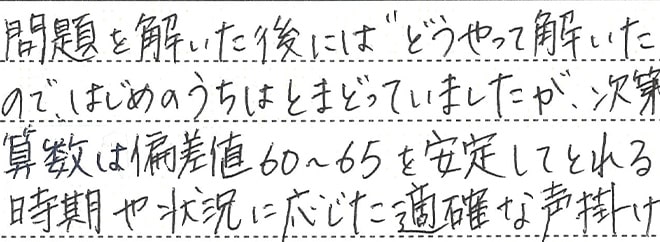 問題を解いた後には“どうやって解いた
ので、はじめのうちはとまどっていましたが、次第
算数は偏差値60~65を安定してとれる
時期や状況に応じた適確な声掛け